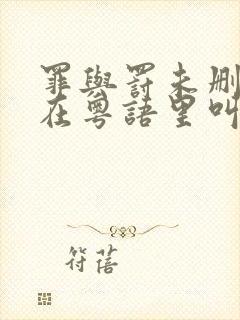 罪與罰未删
在粵語里叫
符蓓